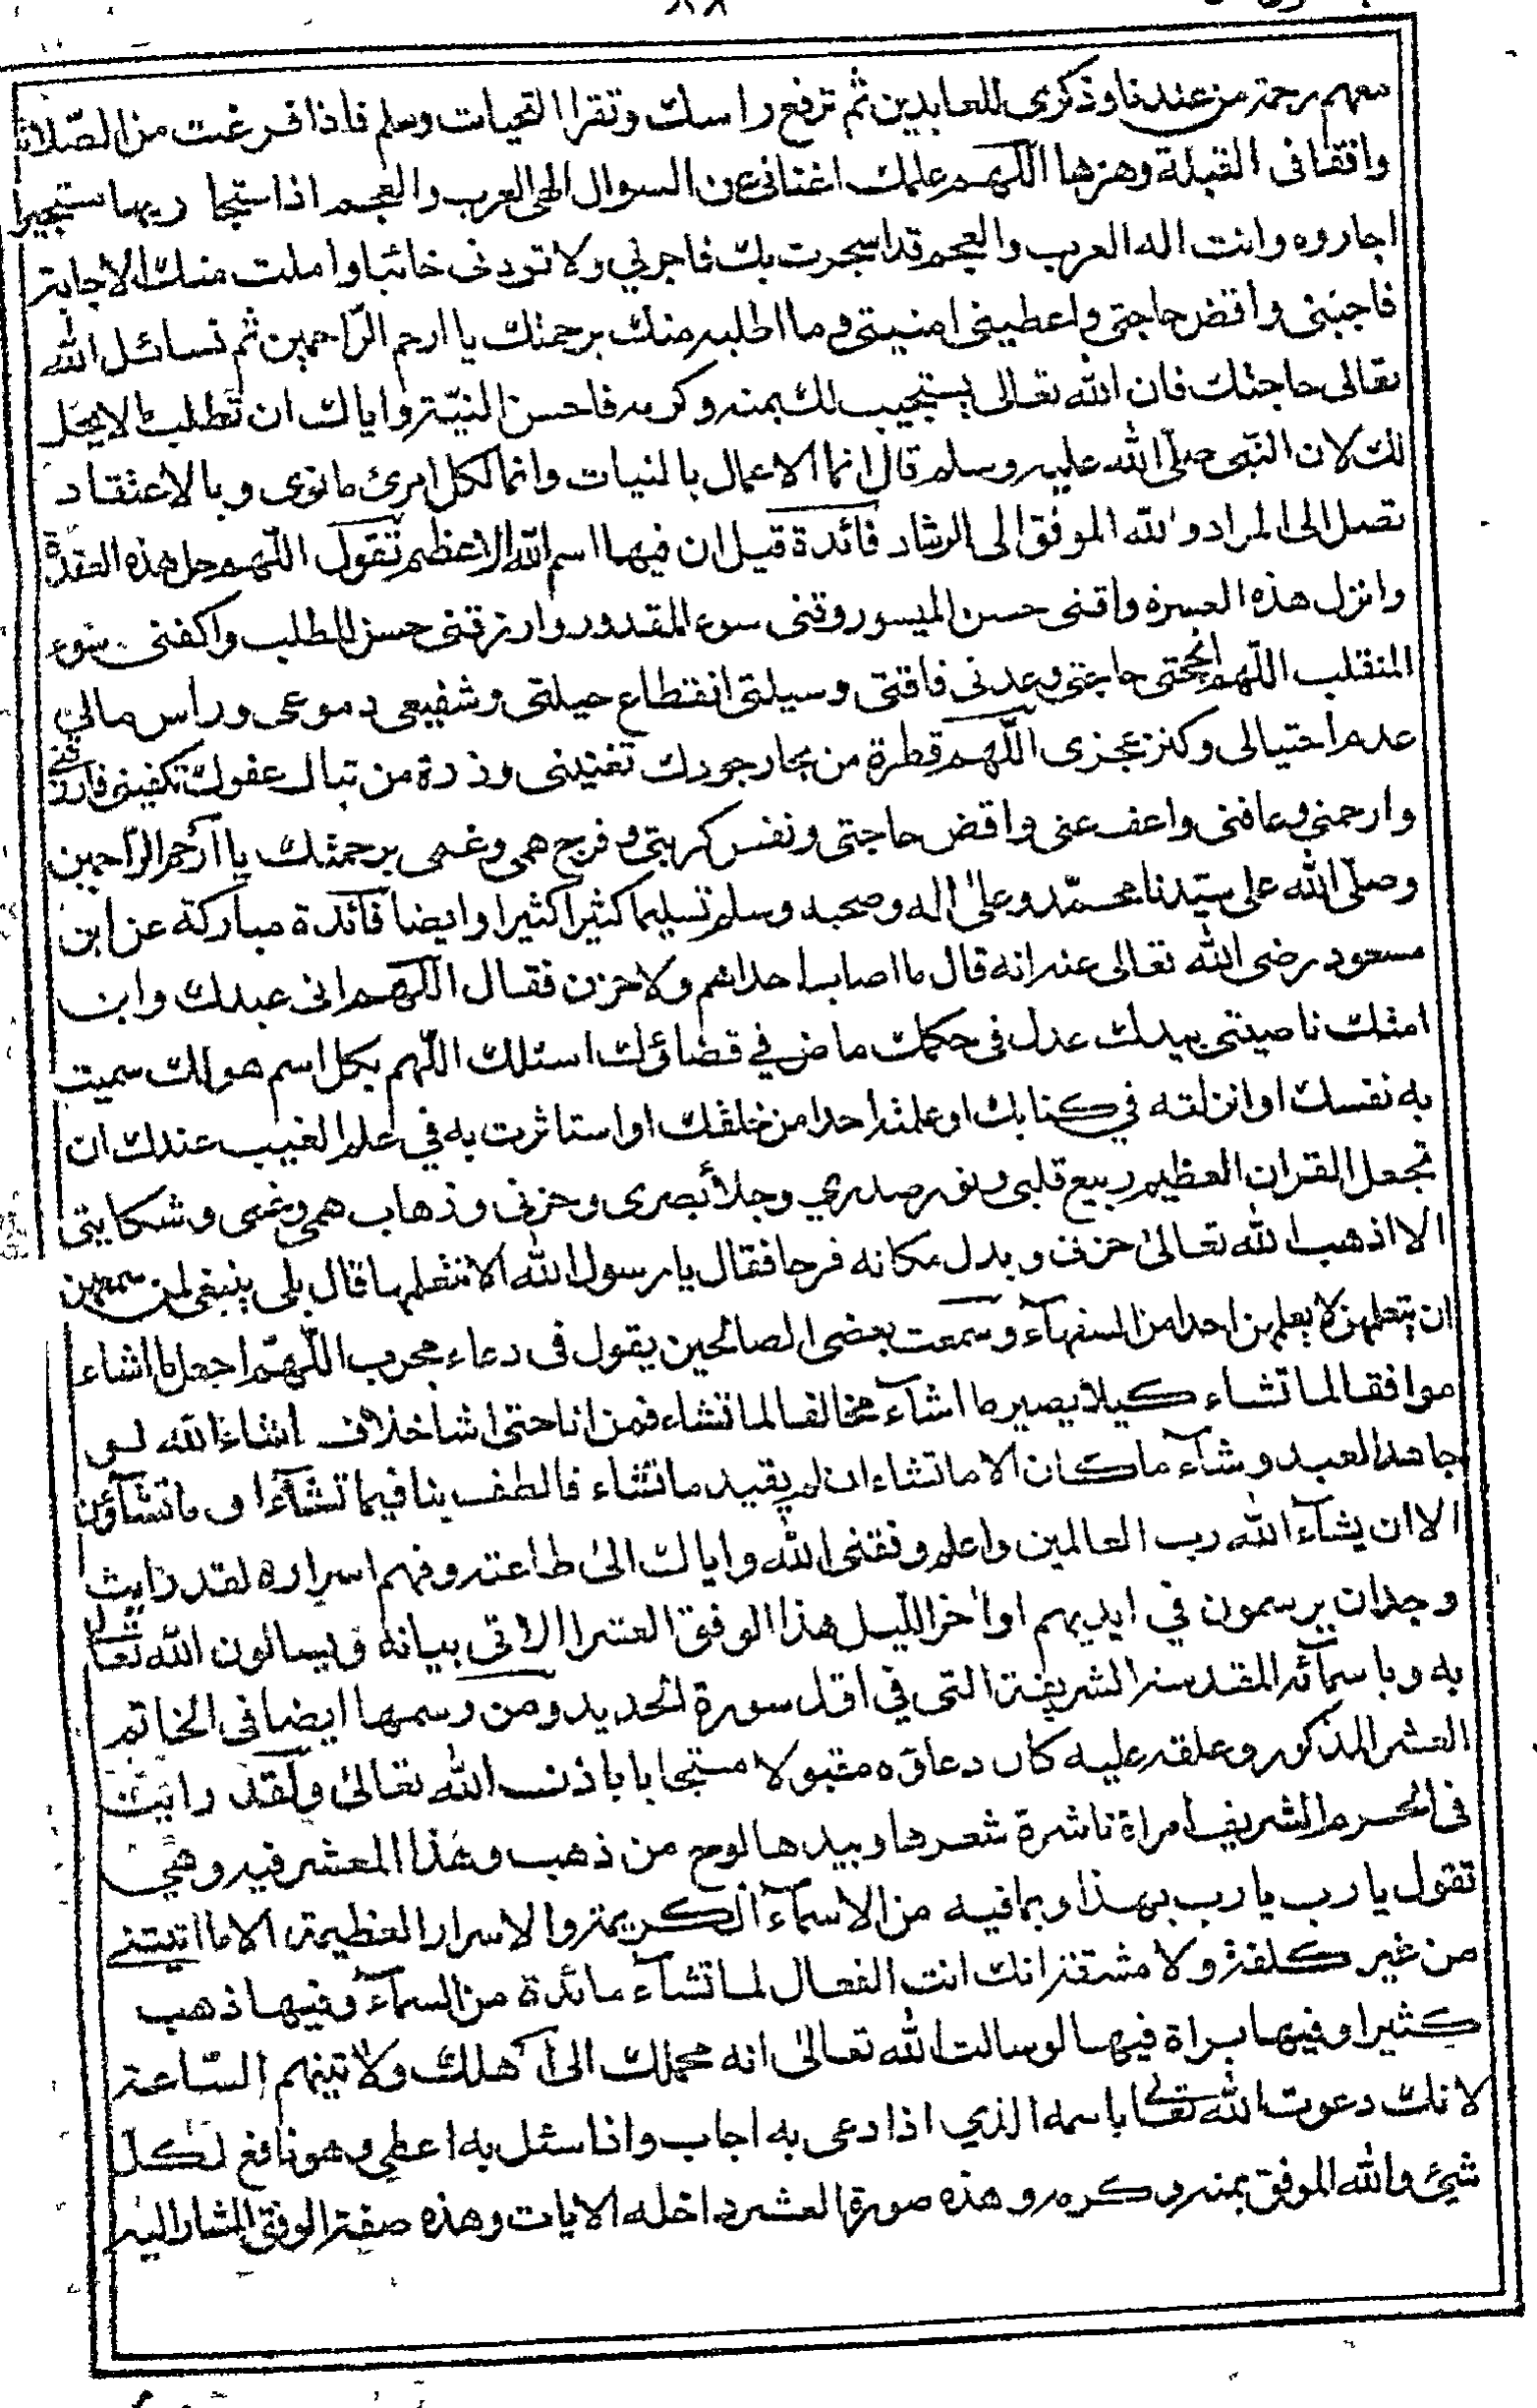 ٨٨
معهم رحمة من عندنا وذكرى للعابدين ثم ترفع راسك وتقرا التحيات وسلم فاذا فرغت من الصّلاة
وافقا فى القبلة وهزها اللّهم علمك اغنانى عن السوال الهى العرب والعجم اذا استجا ربها ستجيرا
اجاروه وانت اله العرب والعجم قد اسجرت بك فاجرني ولا تردنى خائبا واملت منك الاجابة
فاجبنى واقض حاجتى واعطينى امنيتى وما اطلبه منك برحمتك يا ارحم الرّاحمين ثم تسائل الله
تعالى حاجتك فان الله تعالى يستجيب لك بمنه وكرمه فاحسن النيّة واياك ان تطلب ما لا يحل
لك لان النّبى صلى الله عليه وسلم قال انما الاعمال بالنيات وانما لكل امرئ ما نوى وبالاعتقاد
تصل الى المراد والله الموفق الى الرشاد فائدة قيل ان فيها اسم الله الاعظم تقول اللّهم حل هذه العقدة
وانزل هذه العسرة واقنى حسن الميسور وقنى سوء المقدور وارزقنى حسن الطلب واكفنى سوء
المنقلب اللّهم انجحتى حاجتى وعدنى فاقتى وسيلتى انقطاع حيلتى وشفيعى دموعى وراس مالي
عدم احتيالى وكنز عجزى اللّهم قطرة من بحار جودك تغنينى وذرة من تبال عفوك تكفينى فارزقنى
وارحمني وعافنى واعف عنى واقض حاجتى ونفس كربتى وفرج همى وغمى برحمتك يا ارحم الرّاحمين
وصلى الله على سيّدنا محمّد وعلى اله وصحبه وسلم تسليما كثيرا كثيرا وايضا فائدة مباركة عن ابن
مسعود رضى الله تعالى عنه انه قال ما اصاب احدا هم ولا حزن فقال اللّهم انى عبدك وابن
امتك ناصيتى بيدك عدل فى حكمك ماض في قضائك اسئلك اللّهم بكل اسم هو لك سميت
به نفسك او انزلته في كتابك او علمته احدا من خلقك او استاثرت به في علم الغيب عندك ان
تجعل القران العظيم ربيع قلبى ونور صدري وجلاء بصرى وحزنى وذهاب همى وغمى وشكايتى
الا اذهب الله تعالى حزنه وبدل مكانه فرحا فقال يا رسول الله الا نتعلمها قال بلى ينبغى لمن سمعهن
ان يتعلمهن لا يعلمهن احدا من السفهاء وسمعت بعضى الصالحين يقول فى دعاء مجرب اللّهمّ اجعل ما اشاء
موافقا لما تشاء كيلا يصير ما اشاء مخالفا لما تشاء فمن انا حتى اشا خلاف اشاء الله لى
جاهد العبد وشاء ما كان الا ما تشاء ان لم يقيد ما تشاء فالطف بنا فيما تشاء او ما تشاؤن
الا ان يشاء الله رب العالمين واعلم وفقنى الله واياك الى طاعته وفهم اسراره لقد رايت
وجدان يرسمون في ايديهم اواخر اللّيل هذا الوفق العشر الاتى بيانه ويسالون الله تعالى
به وباسمائه المقدسة الشريفة التى في اول سورة الحديد ومن رسمها ايضا فى الخاتم
العشر المذكور وعلقه عليه كان دعاؤه مقبولا مستجابا باذن الله تعالى ولقد رايت
فى الحرم الشريف امراة ناشرة شعرها وبيدها لوح من ذهب وهذا المعشر فيه وهي
تقول يا رب يا رب بهذا وبما فيه من الاسماء الكريمة والاسرار العظيمة الا ما اتيتنى
من غير كلفة ولا مشقة انك انت الفعال لما تشاء مائدة من السماء وفيها ذهب
كثيرا وفيها براة فيها لو سالت الله تعالى انه محملك الى اهلك ولاتينهم السّاعة
لانك دعوت الله تعالى باسمه الذي اذا دعى به اجاب واذا سئل به اعطى وهو نافع لكل
شيئ والله الموفق بمنه وكرمه وهذه صورة العشر داخله الايات وهذه صفة الوفق المشار اليه